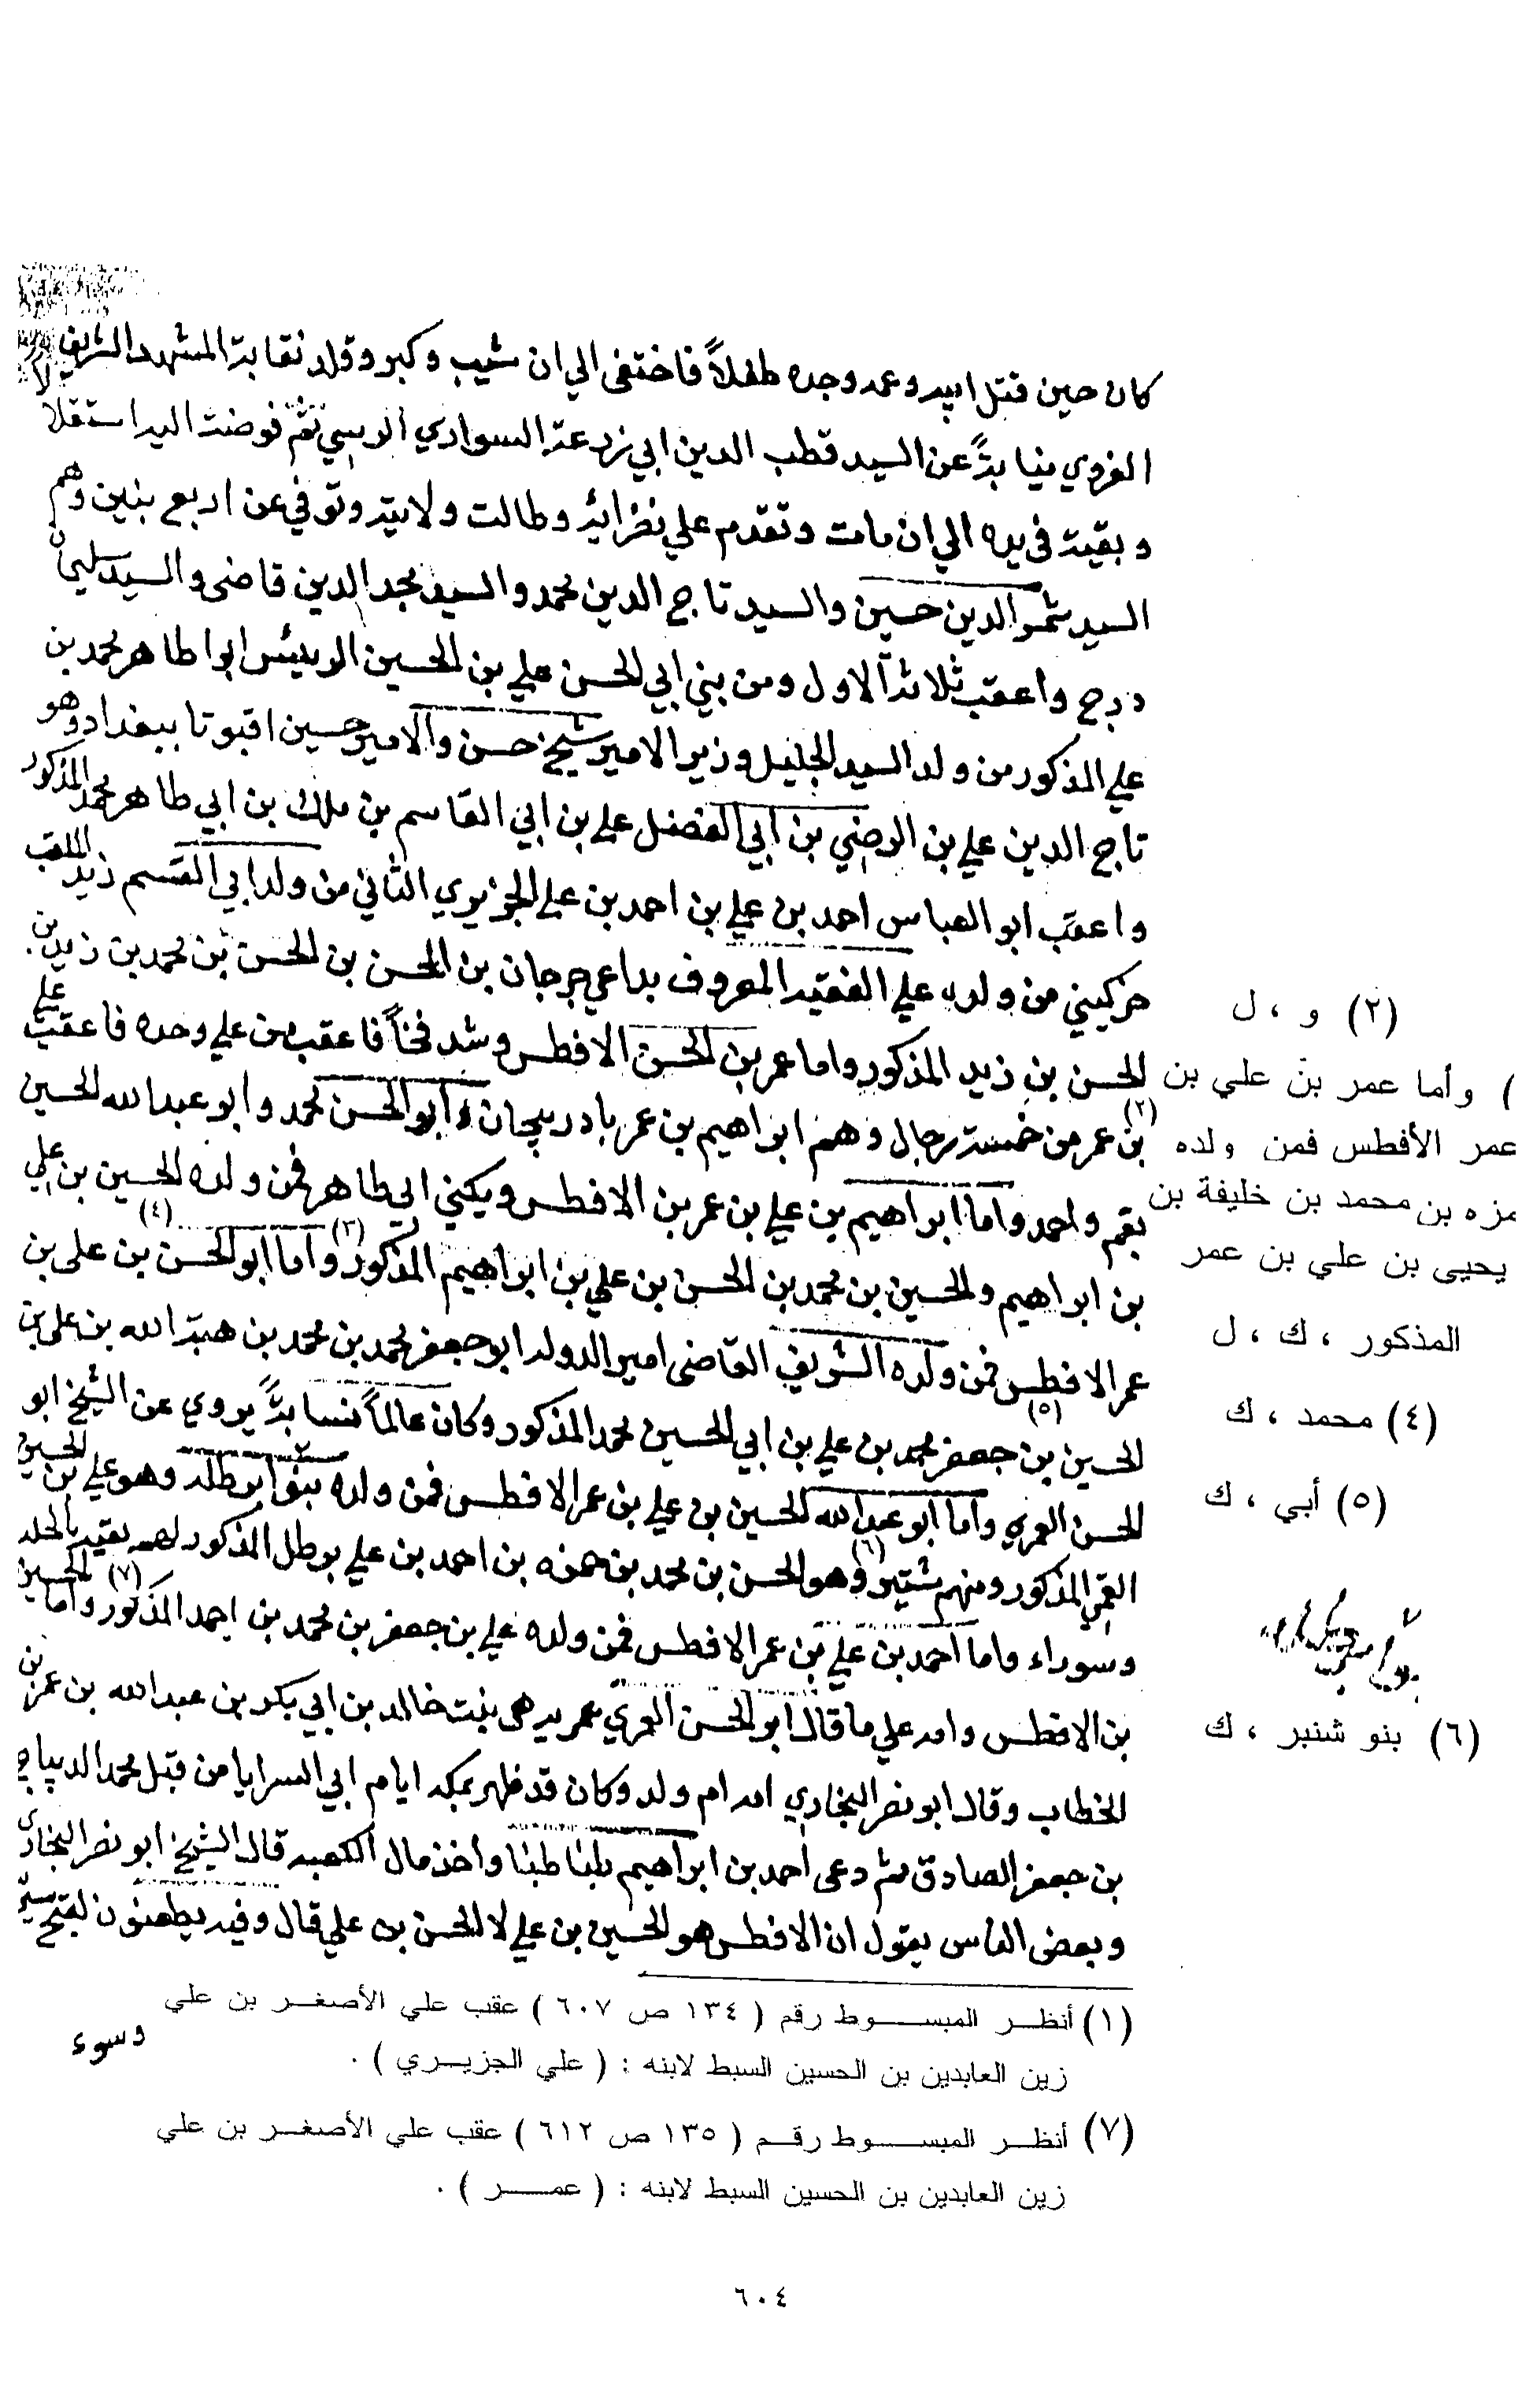 كان حين قتل ابيه وعمه وجده طفلاً فاختفى الي ان شيب وكبر وقلد نقابة المشهد الشريف
الغروي نيابةً عن السيد قطب الدين ابي زرعة السوادي الرسي ثم فوضت اليه استقلالا
وبقيت في يده الي ان مات وتقدم علي نظرائه وطالت ولايته وتوفي عن اربع بنين وهم
السيد شمس الدين حسين والسيد تاج الدين محمد والسيد مجد الدين قاضى والسيد سليمان
درج واعقب ثلاثة الاول ومن بني ابي الحسن علي بن الحسين الرييس ابوا طاهر محمد بن
علي المذكور من ولد السيد الجليل وزير الامير شيخ حسن والامير حسين اقبوتا ببغداد وهو
تاج الدين علي بن الرضي بن ابي الفضل علي بن ابي القاسم بن ملك بن ابي طاهر محمد المذكور
واعقب ابو العباس احمد بن علي بن احمد بن علي الجزيري الثاني من ولد ابي القسم زيد الملقب
حركيني من ولده علي الفقيه المعروف بداعي جرجان بن الحسن بن الحسن بن محمد بن زيد بن
الحسن بن زيد المذكور واما عمر بن الحسن الافطس وشهد فخاً فاعقب من علي وحده فاعقب علي
بن عمر من خمسة رجال وهم ابراهيم بن عمر باذربيجان وأبو الحسن محمد وابو عبد الله الحسين
بقم واحمد واما ابراهيم بن علي بن عمر بن الافطس ويكني ابي طاهر فمن ولده الحسين بن علي
بن ابراهيم والحسين بن محمد بن الحسن بن علي بن ابراهيم المذكور (٣) واما ابو الحسن (٤) بن علي بن
عمر الافطس فمن ولده الشريف القاضى امير الدولة ابو جعفر محمد بن محمد بن هبة الله بن علي بن
الحسين بن جعفر محمد بن علي بن ابي الحسين محمد المذكور وكان عالماً نسابةً يروي عن الشيخ ابو (٥)
الحسن العمري واما ابو عبد الله الحسين بن علي بن عمر الافطس فمن ولده بنو ابرطله وهو علي بن الحسين
القمي المذكور ومنهم شتير (٦) وهو الحسن بن محمد بن حمزه بن احمد بن علي برطل المذكور لهم بقيه بالحله
وسوراء واما احمد بن علي بن عمر الافطس فمن ولده علي بن جعفر بن محمد بن احمد المذكور (٧) واما الحسين
بن الافطس وامه علي ما قال ابو الحسن العمري عمريه هي بنت خالد بن ابي بكر بن عبد الله بن عمر بن
الخطاب وقال ابو نصر البخاري امه ام ولد وكان قد ظهر بمكه ايام ابي السرايا من قبل محمد الديباج
بن جعفر الصادق ثم دعى لمحمد بن ابراهيم طبا طبا واخذ مال الكعبه قال الشيخ ابو نصر البخاري
وبعض الناس يقول ان الافطس هو الحسين بن علي لا الحسن بن علي قال وفيه يطعنون لقبح سيرته
وسوء
(٢) و ، ل
) وأما عمر بن علي بن
عمر الأفطس فمن ولده
مزه بن محمد بن خليفة بن
يحيى بن علي بن عمر
المذكور ، ك ، ل
(٤) محمد ، ك
(٥) أبي ، ك
(٦) بنو شنبر ، ك
(١) أنظر المبسوط رقم ( ١٣٤ ص ٦٠٧ ) عقب علي الأصغر بن علي
زين العابدين بن الحسين السبط لابنه : ( علي الجزيري ) .
(٧) أنظر المبسوط رقم ( ١٣٥ ص ٦١٢ ) عقب علي الأصغر بن علي
زين العابدين بن الحسين السبط لابنه : ( عمر ) .
٦٠٤